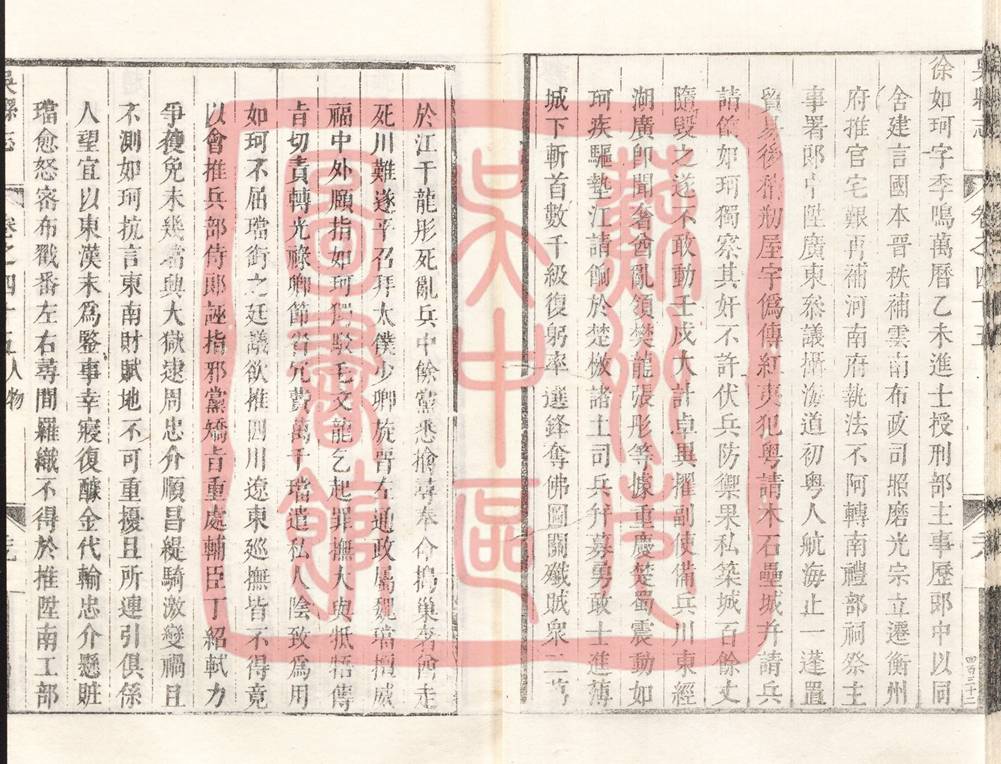 徐如珂字季鳴萬曆乙未進士授刑部主事歷郎中以同
舍建言國本晉秩補雲南布政司照磨光宗立遷衡州
府推官宅艱再補河南府執法不阿轉南禮部祠祭主
事署郎中陞廣東叅議攝海道初粤人航海止一蓬置
貿易後稍剏屋宇爲傳紅夷犯粤請木石壘城幷請兵
請餉如珂獨察其奸不許伏兵防禦果私築城百餘丈
隨毀之遂不敢動壬戌大計卓異擢副使備兵川東經
湖廣卽聞奢酋亂須樊龍張彤等據重慶楚蜀震動如
珂疾驅墊江請餉於楚檄諸土司兵弁募勇敢士進薄
城下斬首數千級復躬率選鋒奪佛圖關殲賊衆二萬
於江干龍彤死亂兵中餘黨悉搶尋奉命搗巢奢酋走
死川難遂平召拜太僕少卿旋晋左通政屬魏璫擅威
福中外願指如珂獨駁毛文龍乞起罪撫大與牴牾傳
旨切責轉光祿卿節省冗費萬千璫遣私人陰致爲用
如珂不屈璫銜之廷議欲推四川遼東廵撫皆不得竟
以會推兵部侍郎誣指邪黨矯旨重處輔臣丁紹軾力
爭獲免未幾璫興大獄逮周忠介順昌緹騎激變禍且
不測如珂抗言東南財賦地不可重擾且所連引俱係
人望宜以東漢末爲鑒事幸寢復醵金代輸忠介懸贓
璫愈怒密布戳番左右尋間羅織不得於推陞南工部
吳縣志
卷之四十五
人物
四百三十二
蘇州市
吳中區
圖書館